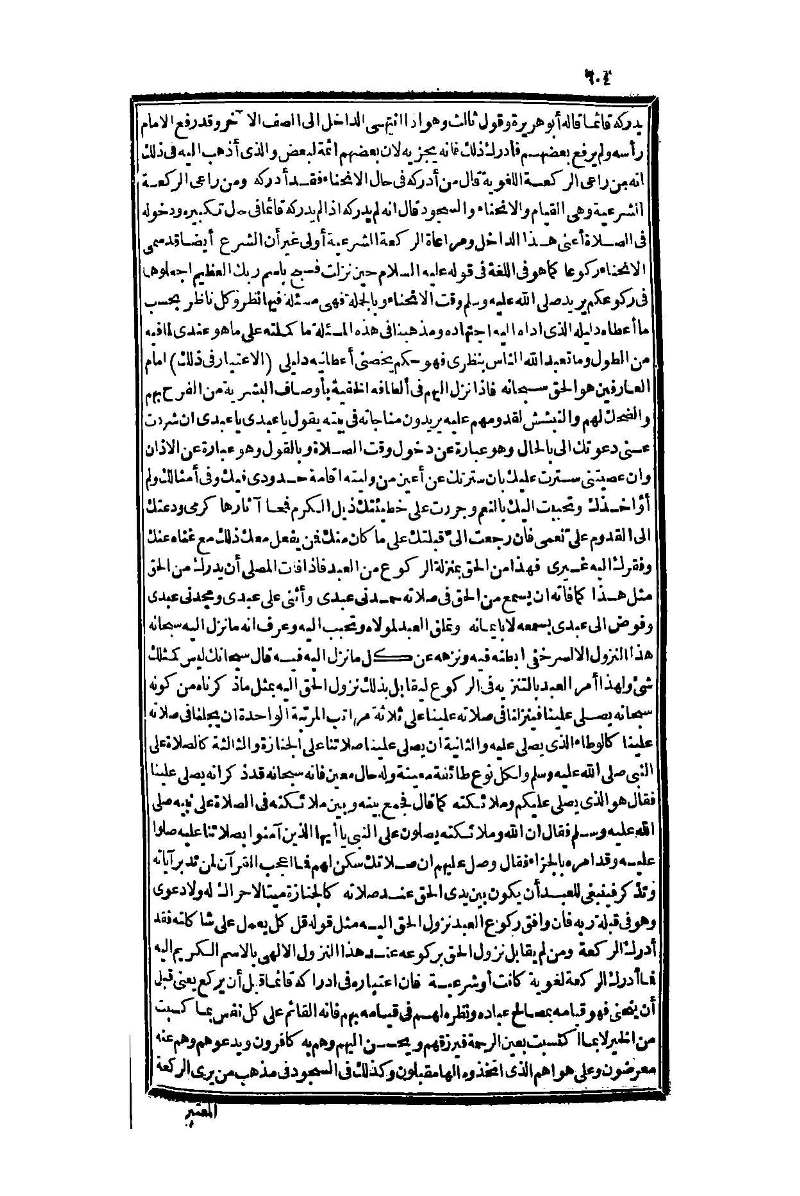 ٦٠٤
يدركه قائما قاله أبو هريرة وقول ثالث وهو اذا انتهى الداخل الى الصف الآخر وقد رفع الامام
رأسه ولم يرفع بعضهم فأدرك ذلك فانه يجزيه لان بعضهم ائمة لبعض والذى أذهب اليه فى ذلك
انه من راعى الركعة اللغوية قال من أدركه فى حال الانحناء فقد أدركه ومن راعى الركعة
الشرعية وهى القيام والانحناء والسجود قال انه لم يدركه اذا لم يدركه قائما فى حال تكبيره ودخوله
فى الصلاة أعنى هذا الداخل ومراعاة الركعة الشرعية أولى غير أن الشرع أيضا قد سمى
الانحناء ركوعا كما هو فى اللغة فى قوله عليه السلام حين نزلت فسبح باسم ربك العظيم اجعلوها
فى ركوعكم يريد صلى الله عليه وسلم وقت الانحناء وبالجملة فهى مسئلة فيها نظر وكل ناظر بحسب
ما أعطاه دليله الذى اداه اليه اجتهاده ومذهبنا فى هذه المسئلة ما كملته على ما هو عندى لما فيه
من الطول وما تعبد الله الناس بنظرى فهو حكم يخصنى أعطانيه دليلى (الاعتبار فى ذلك) امام
العارفين هو الحق سبحانه فاذا نزل اليهم فى ألطافه الخفية بأوصاف البشرية من الفرح بهم
والضحك لهم والتبشش لقدومهم عليه يريدون مناجاته فى بيته يقول يا عبدى يا عبدى ان شردت
عنى دعوتك الى بالحال وهو عبارة عن دخول وقت الصلاة وبالقول وهو عبارة عن الاذان
وان عصيتنى سترت عليك بان سترتك عن أعين من وليته اقامة حدودى فيك وفى أمثالك ولم
أؤاخذك وتحببت اليك بالنعم وجررت على خطيئتك ذيل الكرم فمحا آثارها كرمى ودعتك
الى القدوم على نعمى فان رجعت الىّ قبلتك على ما كان منك فمن يفعل معك ذلك مع غناه عنك
وفقرك اليه غيرى فهذا من الحق بمنزلة الركوع من العبد فاذا فات المصلى أن يدرك من الحق
مثل هذا كما فاته ان يسمع من الحق فى صلاته حمدنى عبدى وأثنى على عبدى ومجدنى عبدى
وفوض الى عبدى يسمعه لا بايمانه وتملق العبد لمولاه وتحبب اليه وعرف انه ما نزل اليه سبحانه
هذا النزول الا لسر خفى ابطنه فيه ونزهه عن كل ما نزل اليه فيه قال سبحانك ليس كمثلك
شئ ولهذا أمر العبد بالتنزيه فى الركوع ليقابل بذلك نزول الحق اليه بمثل ما ذكرناه من كونه
سبحانه يصلى علينا فينزلنا فى صلاته علينا على ثلاثة مراتب المرتبة الواحدة ان يجعلنا فى صلاته
علينا كالوطاء الذى يصلى عليه والثانية ان يصلى علينا صلاتنا على الجنازة والثالثة كالصلاة على
النبى صلى الله عليه وسلم ولكل نوع طائفة معينة وله حال معين فانه سبحانه قد ذكر انه يصلى علينا
فقال هو الذى يصلى عليكم وملائكته كما قال فجمع بينه وبين ملائكته فى الصلاة على نبيه صلى
الله عليه وسلم فقال ان الله وملائكته يصلون على النبى يا أيها الذين آمنوا بصلاتنا عليه صلوا
عليه وقد امره بالجزاء فقال وصل عليهم ان صلاتك سكن لهم فما اعجب القرآن لمن تدبر آياته
وتذكر فينبغى للعبد أن يكون بين يدى الحق عند صلاته كالجنازة ميتا لا حراك له ولا دعوى
وهو فى قبلة ربه فان وافق ركوع العبد نزول الحق اليه مثل قوله قل كل يعمل على شاكلته فقد
أدرك الركعة ومن لم يقابل نزول الحق بركوعه عند هذا النزول الالهى بالاسم الكريم اليه
فما أدرك الركعة لغوية كانت أو شرعية فان اعتباره فى ادراكه قائما قبل أن يركع يعنى قبل
أن ينحنى فهو قيامه بمصالح عباده ونظره لهم فى قيامه بهم فانه القائم على كل نفس بما كسبت
من الخير لا بما اكتسبت بعين الرحمة فيرزقهم ويحسن اليهم وهم به كافرون ويدعوهم وهم عنه
معرضون وعلى هواهم الذى اتخذوه الها مقبلون وكذلك فى السجود فى مذهب من يرى الركعة
المعتبر